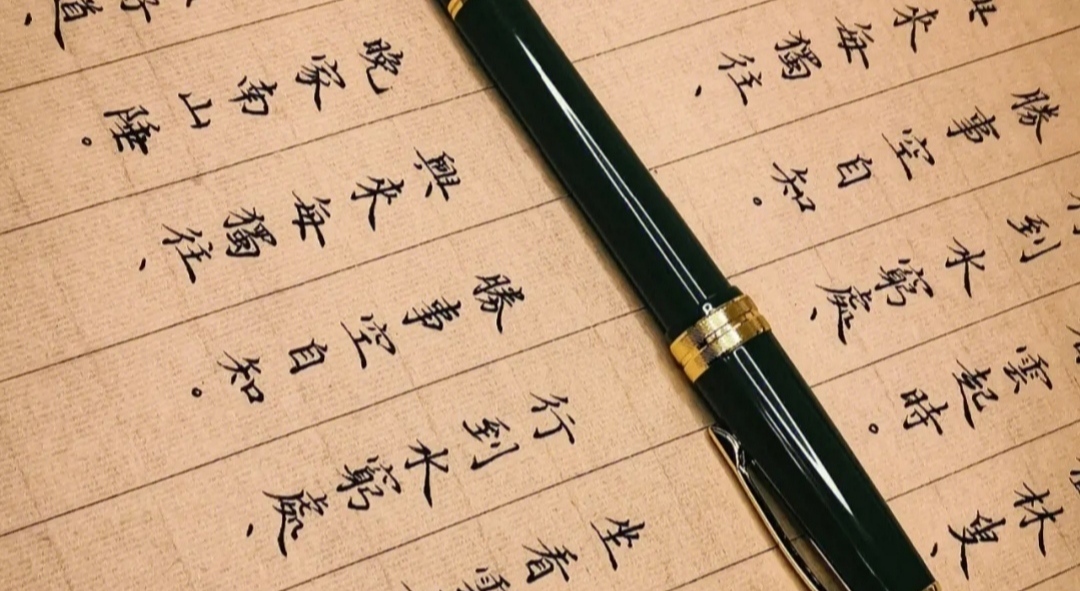 來每獨往、
勝事空自知。
到水窮處、
雲起時。
林叟、
道、
晚家南山陲。
興來每獨往、
勝事空自知。
行到水窮處、
坐看雲